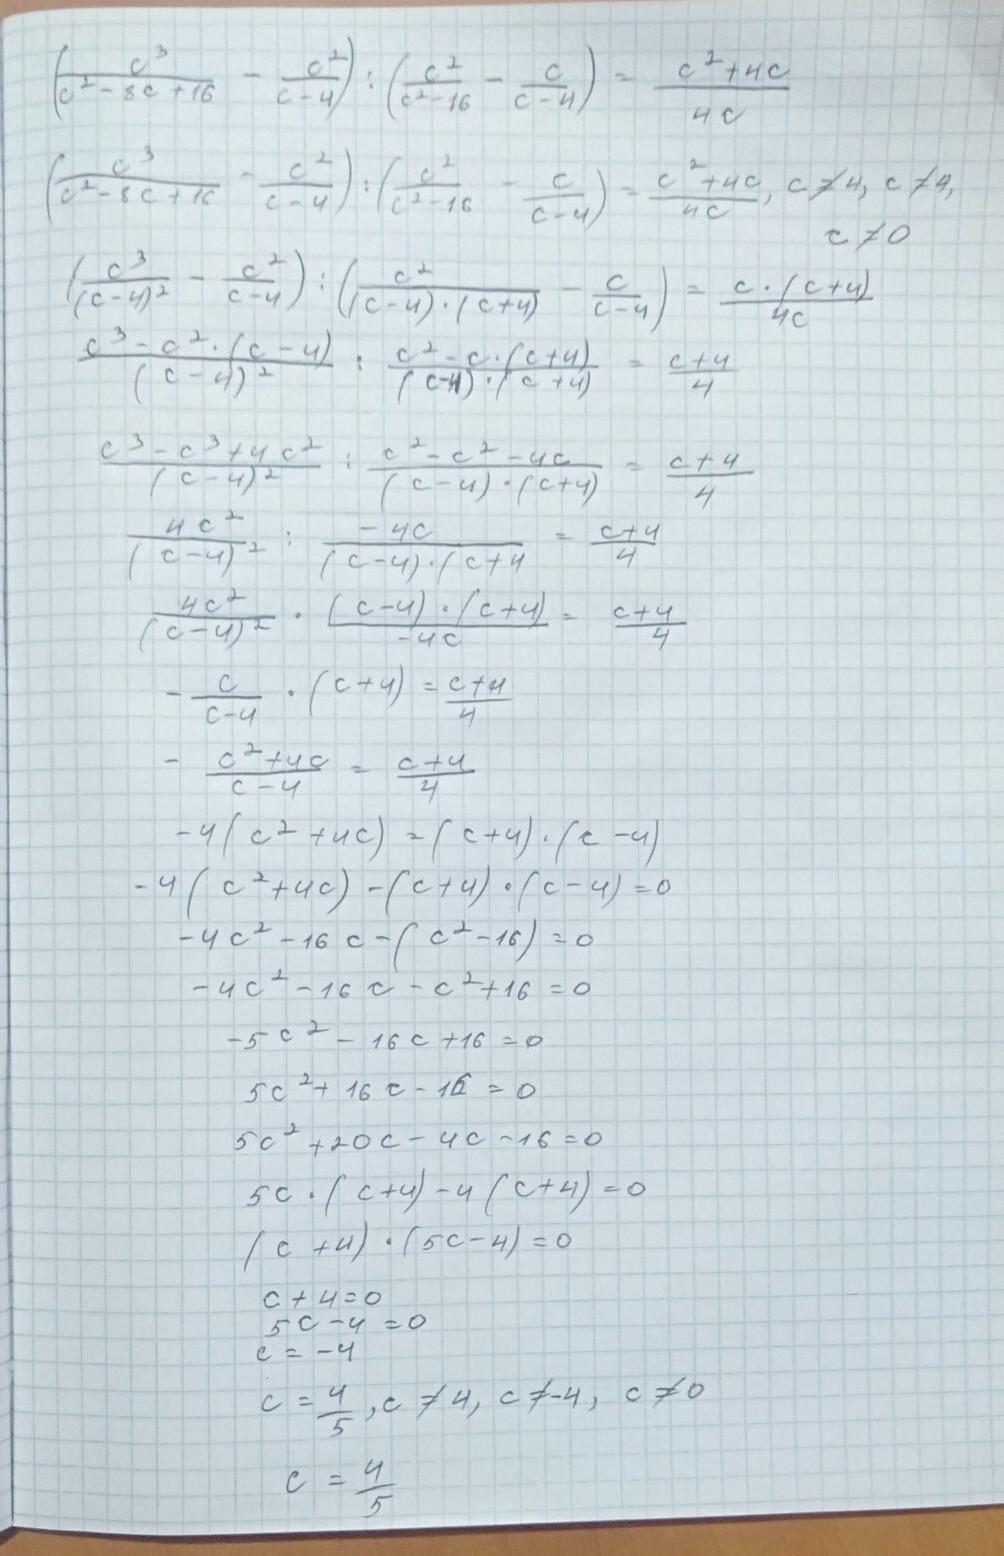 (c³/(c²-8c+16) - c²/(c-4)) : (c²/(c²-16) - c/(c-4)) = (c²+4c)/4c
(c³/(c²-8c+16) - c²/(c-4)) : (c²/(c²-16) - c/(c-4)) = (c²+4c)/4c, c≠4, c≠4,
c≠0
(c³/(c-4)² - c²/(c-4)) : (c²/((c-4)·(c+4)) - c/(c-4)) = c·(c+4)/4c
(c³-c²·(c-4))/(c-4)² : (c²-c·(c+4))/((c-4)·(c+4)) = (c+4)/4
(c³-c³+4c²)/(c-4)² : (c²-c²-4c)/((c-4)·(c+4)) = (c+4)/4
4c²/(c-4)² : -4c/((c-4)·(c+4 = (c+4)/4
4c²/(c-4)² · ((c-4)·(c+4))/-4c = (c+4)/4
- c/(c-4) · (c+4) = (c+4)/4
- (c²+4c)/(c-4) = (c+4)/4
-4(c²+4c) = (c+4)·(c-4)
-4(c²+4c)-(c+4)·(c-4)=0
-4c²-16c-(c²-16)=0
-4c²-16c-c²+16=0
-5c²-16c+16=0
5c²+16c-16=0
5c²+20c-4c-16=0
5c·(c+4)-4(c+4)=0
(c+4)·(5c-4)=0
c+4=0
5c-4=0
c=-4
c=4/5, c≠4, c≠-4, c≠0
c=4/5